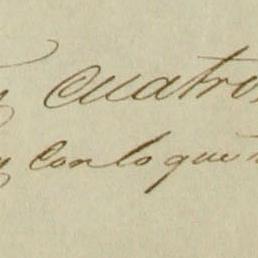 cuatro
y con lo que